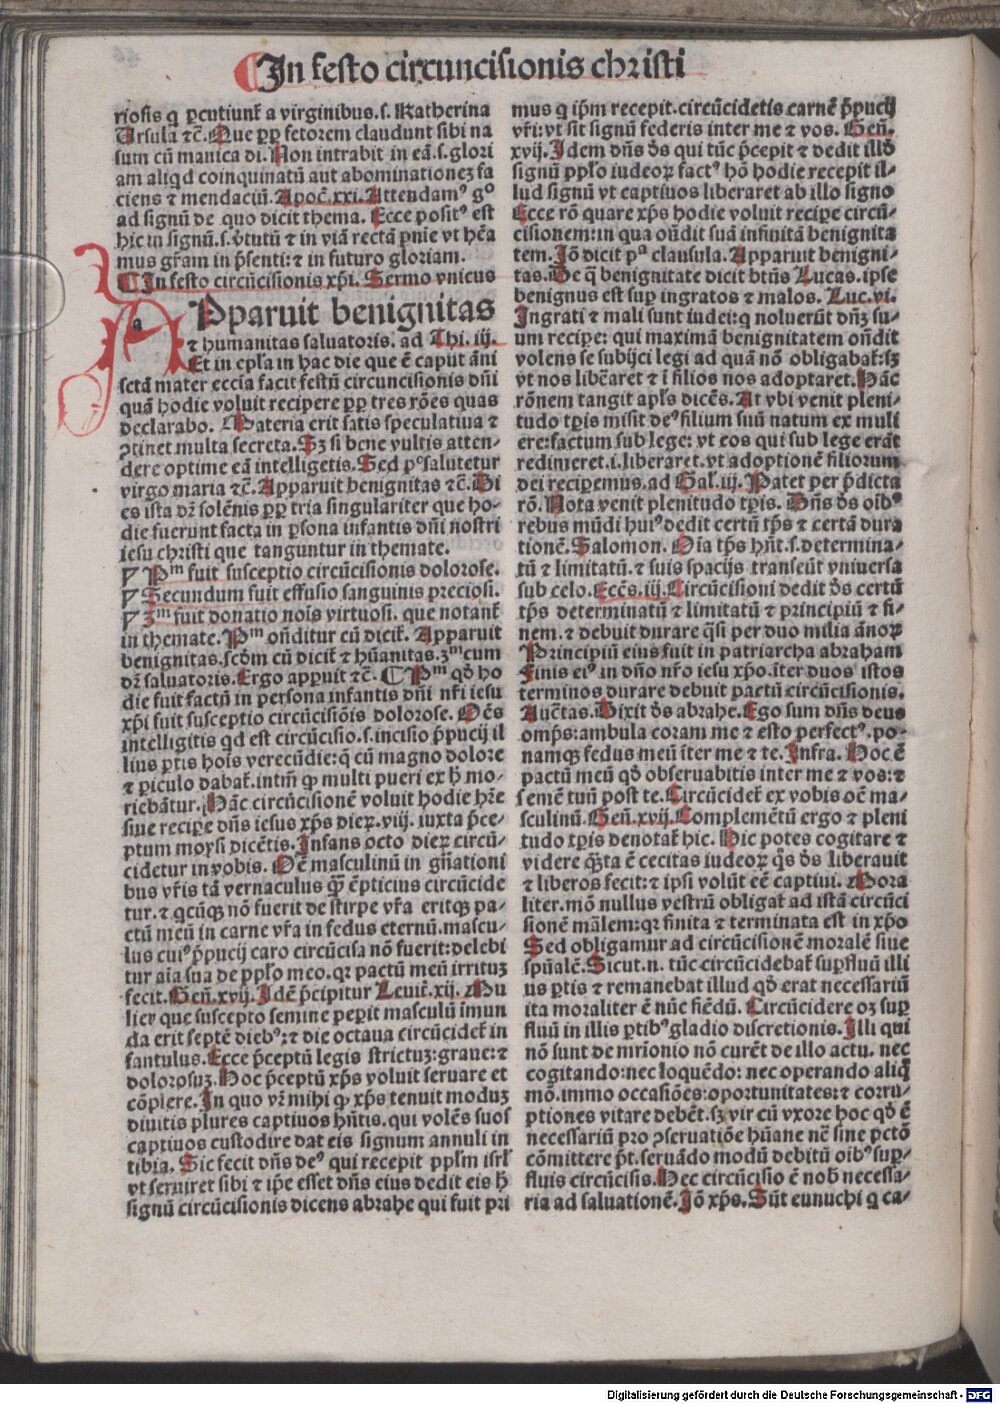 In festo circuncisionis christi
riosis q̄ ꝑcutiunt᷑ a virginibus.s. Katherina
Ursula ⁊c̄. Que ꝓp fetorem claudunt sibi na
sum cū manica di. Non intrabit in eā.s.glori
am aliqd coinquinatū aut abominationeꝫ fa
ciens ⁊ mendaciū. Apoc̄.xxi. Attendamꝰ gͦ
ad signū de quo dicit thema. Ecce positꝰ est
hic in signū.s.ꝟtutū ⁊ in viā rectā pn̄ie vt hēa
mus gr̄am in p̄senti:⁊ in futuro gloriam.
¶ In festo circūcisionis xp̄i. Sermo vnicus
APparuit benignitas
⁊ humanitas saluatoris. ad Thi.iij.
Et in epl̄a in hac die que ē caput āni
sctā mater eccīa facit festū circuncisionis dn̄i
quā hodie voluit recipere ꝓp tres rōes quas
declarabo. Materia erit satis speculatiua ⁊
ꝯtinet multa secreta. Sꝫ si bene vultis atten⸗
dere optime eā intelligetis. Sed pͥꝰ salutetur
virgo maria ⁊c̄. Apparuit benignitas ⁊c̄. Di
es ista dꝫ solēnis ꝓp tria singulariter que ho⸗
die fuerunt facta in ꝑsona infantis dn̄i nostri
iesu christi que tanguntur in themate.
Pᵐ fuit susceptio circūcisionis dolorose.
Secundum fuit effusio sanguinis preciosi.
3ᵐ fuit donatio nois̄ virtuosi. que notant᷑
in themate. Pᵐ on̄ditur cū dicit᷑. Apparuit
benignitas.scd̄m cū dicit᷑ ⁊ hūanitas.3ᵐ cum
dꝛ saluatoris. Ergo appuit ⁊c̄. ¶ Pᵐ qd̄ ho
die fuit factū in persona infantis dn̄i nr̄i iesu
xp̄i fuit susceptio circūcisiōis dolorose. Oēs
intelligitis qd est circūcisio.s.incisio p̄pucij il
lius ꝑtis hois̄ verecūdie:q̄ cū magno dolore
⁊ ꝑiculo dabat᷑.intm̄ ꝙ multi pueri ex h̄ mo⸗
riebātur. Hāc circūcisionē voluit hodie hr̄e
siue recipe dn̄s iesus xp̄s dieꝝ.viij. iuxta p̄ce⸗
ptum moysi dicētis. Infans octo dieꝝ circū⸗
cidetur in vobis. Oē masculinū in gn̄ationi
bus vr̄is tā vernaculus q̄ꝫ ēpticius circūcide
tur.⁊ qcūqꝫ nō fuerit de stirpe vr̄a eritqꝫ pa⸗
ctū meū in carne vr̄a in fedus eternū.mascu⸗
lus cuiꝰ p̄pucij caro circūcisa nō fuerit:delebi
tur aīa sua de ppl̄o meo.qꝛ pactū meū irrituꝫ
fecit. Gen̄.xvij. Idē p̄cipitur Leuit᷑.xij. Mu
lier que suscepto semine peꝑit masculū imun
da erit septē diebꝰ:⁊ die octaua circūcidet᷑ in
fantulus. Ecce p̄ceptū legis strictuꝫ:graue:⁊
dolorosuꝫ. Hoc p̄ceptū xp̄s voluit seruare et
cōplere. In quo vꝛ̄ mihi ꝙ xp̄s tenuit moduꝫ
diuitis plures captiuos hn̄tis.qui volēs suos
captiuos custodire dat eis signum annuli in
tibia. Sic fecit dn̄s deꝰ qui recepit ppl̄m isrl̄
vt seruiret sibi ⁊ ip̄e esset dn̄s eius dedit eis h̄
signū circūcisionis dicens abrahe qui fuit pri
mus q ip̄m recepit.circūcidetis carnē p̄pucij
vr̄i:vt sit signū federis inter me ⁊ vos. Gen̄.
xvij. Idem dn̄s d̄s qui tūc p̄cepit ⁊ dedit illd̄
signū ppl̄o iudeoꝝ factꝰ hō hodie recepit il⸗
lud signū vt captiuos liberaret ab illo signo
Ecce rō quare xp̄s hodie voluit recipe circū⸗
cisionem:in qua on̄dit suā infinitā benignita
tem. Iō dicit pᵃ clausula. Apparuit benigni⸗
tas. De q̄ benignitate dicit btn̄s Lucas.ipse
benignus est suꝑ ingratos ⁊ malos. Luc.vi.
Ingrati ⁊ mali sunt iudei:q noluerūt dn̄ꝫ su⸗
um recipe: qui maximā benignitatem on̄dit
volens se subijci legi ad quā nō obligabat᷑:sꝫ
vt nos libēaret ⁊ ī filios nos adoptaret. Hāc
rōnem tangit apl̄s dicēs. At vbi venit pleni⸗
tudo tꝑis misit deꝰ filium suū natum ex muli
ere:factum sub lege: vt eos qui sub lege erāt
redimeret.i.liberaret.vt adoptionē filiorum
dei reciperemus.ad Gal̄.iij. Patet per p̄dicta
rō. Nota venit plenitudo tꝑis. Dn̄s d̄s oibꝰ
rebus mūdi huiꝰ dedit certū tp̄s ⁊ certā dura
tionē. Salomon. Oīa tp̄s hn̄t.s.determina⸗
tū ⁊ limitatū.⁊ suis spacijs transeūt vniuersa
sub celo. Eccēs.iij. Circūcisioni dedit d̄s certū
tp̄s determinatū ⁊ limitatū ⁊ principiū ⁊ fi⸗
nem.⁊ debuit durare q̄si per duo milia ānoꝝ
Principiū eius fuit in patriarcha abraham
Finis eiꝰ in dn̄o nr̄o iesu xp̄o.īter duos istos
terminos durare debuit pactū circūcisionis.
Auc̄tas. Dixit d̄s abrahe. Ego sum dn̄s deus
omp̄s:ambula coram me ⁊ esto perfectꝰ.po⸗
namqꝫ fedus meū īter me ⁊ te. Infra. Hoc ē
pactū meū qd̄ obseruabitis inter me ⁊ vos:⁊
semē tuū post te. Circūcidet᷑ ex vobis oē ma⸗
sculinū. Gen̄.xvij. Complemētū ergo ⁊ pleni
tudo tꝑis denotat᷑ hic. Hic potes cogitare ⁊
videre q̄ꝫta ē cecitas iudeoꝝ q̄s d̄s liberauit
⁊ liberos fecit:⁊ ipsi volūt eē captiui. Mora
liter.mō nullus vestrū obligat᷑ ad istā circūci
sionē māleꝫ:qꝛ finita ⁊ terminata est in xp̄o
Sed obligamur ad circūcisionē moralē siue
spūalē. Sicut.n. tūc circūcidebat᷑ suꝑfluū illi
us ꝑtis ⁊ remanebat illud qd̄ erat necessariū
ita moraliter ē nūc fiēdū. Circūcidere oꝫ suꝑ
fluū in illis ꝑtibꝰ gladio discretionis. Illi qui
nō sunt de mr̄ionio nō curēt de illo actu. nec
cogitando:nec loquēdo: nec operando aliq̄
mō.immo occasiōes:oportunitates:⁊ corru⸗
ptiones vitare debēt.sꝫ vir cū vxore hoc qd̄ ē
necessariū pro ꝯseruatiōe hūane nc̄ sine pctō
cōmittere p̄t.seruādo modū debitū oibꝰ suꝑ⸗
fluis circūcisis. Hec circūcisio ē nob̄ necessa⸗
ria ad saluationē. Iō xp̄s. Sūt eunuchi q ca⸗
Digitalisierung gefördert durch die Deutsche Forschungsgemeinschaft - DFG